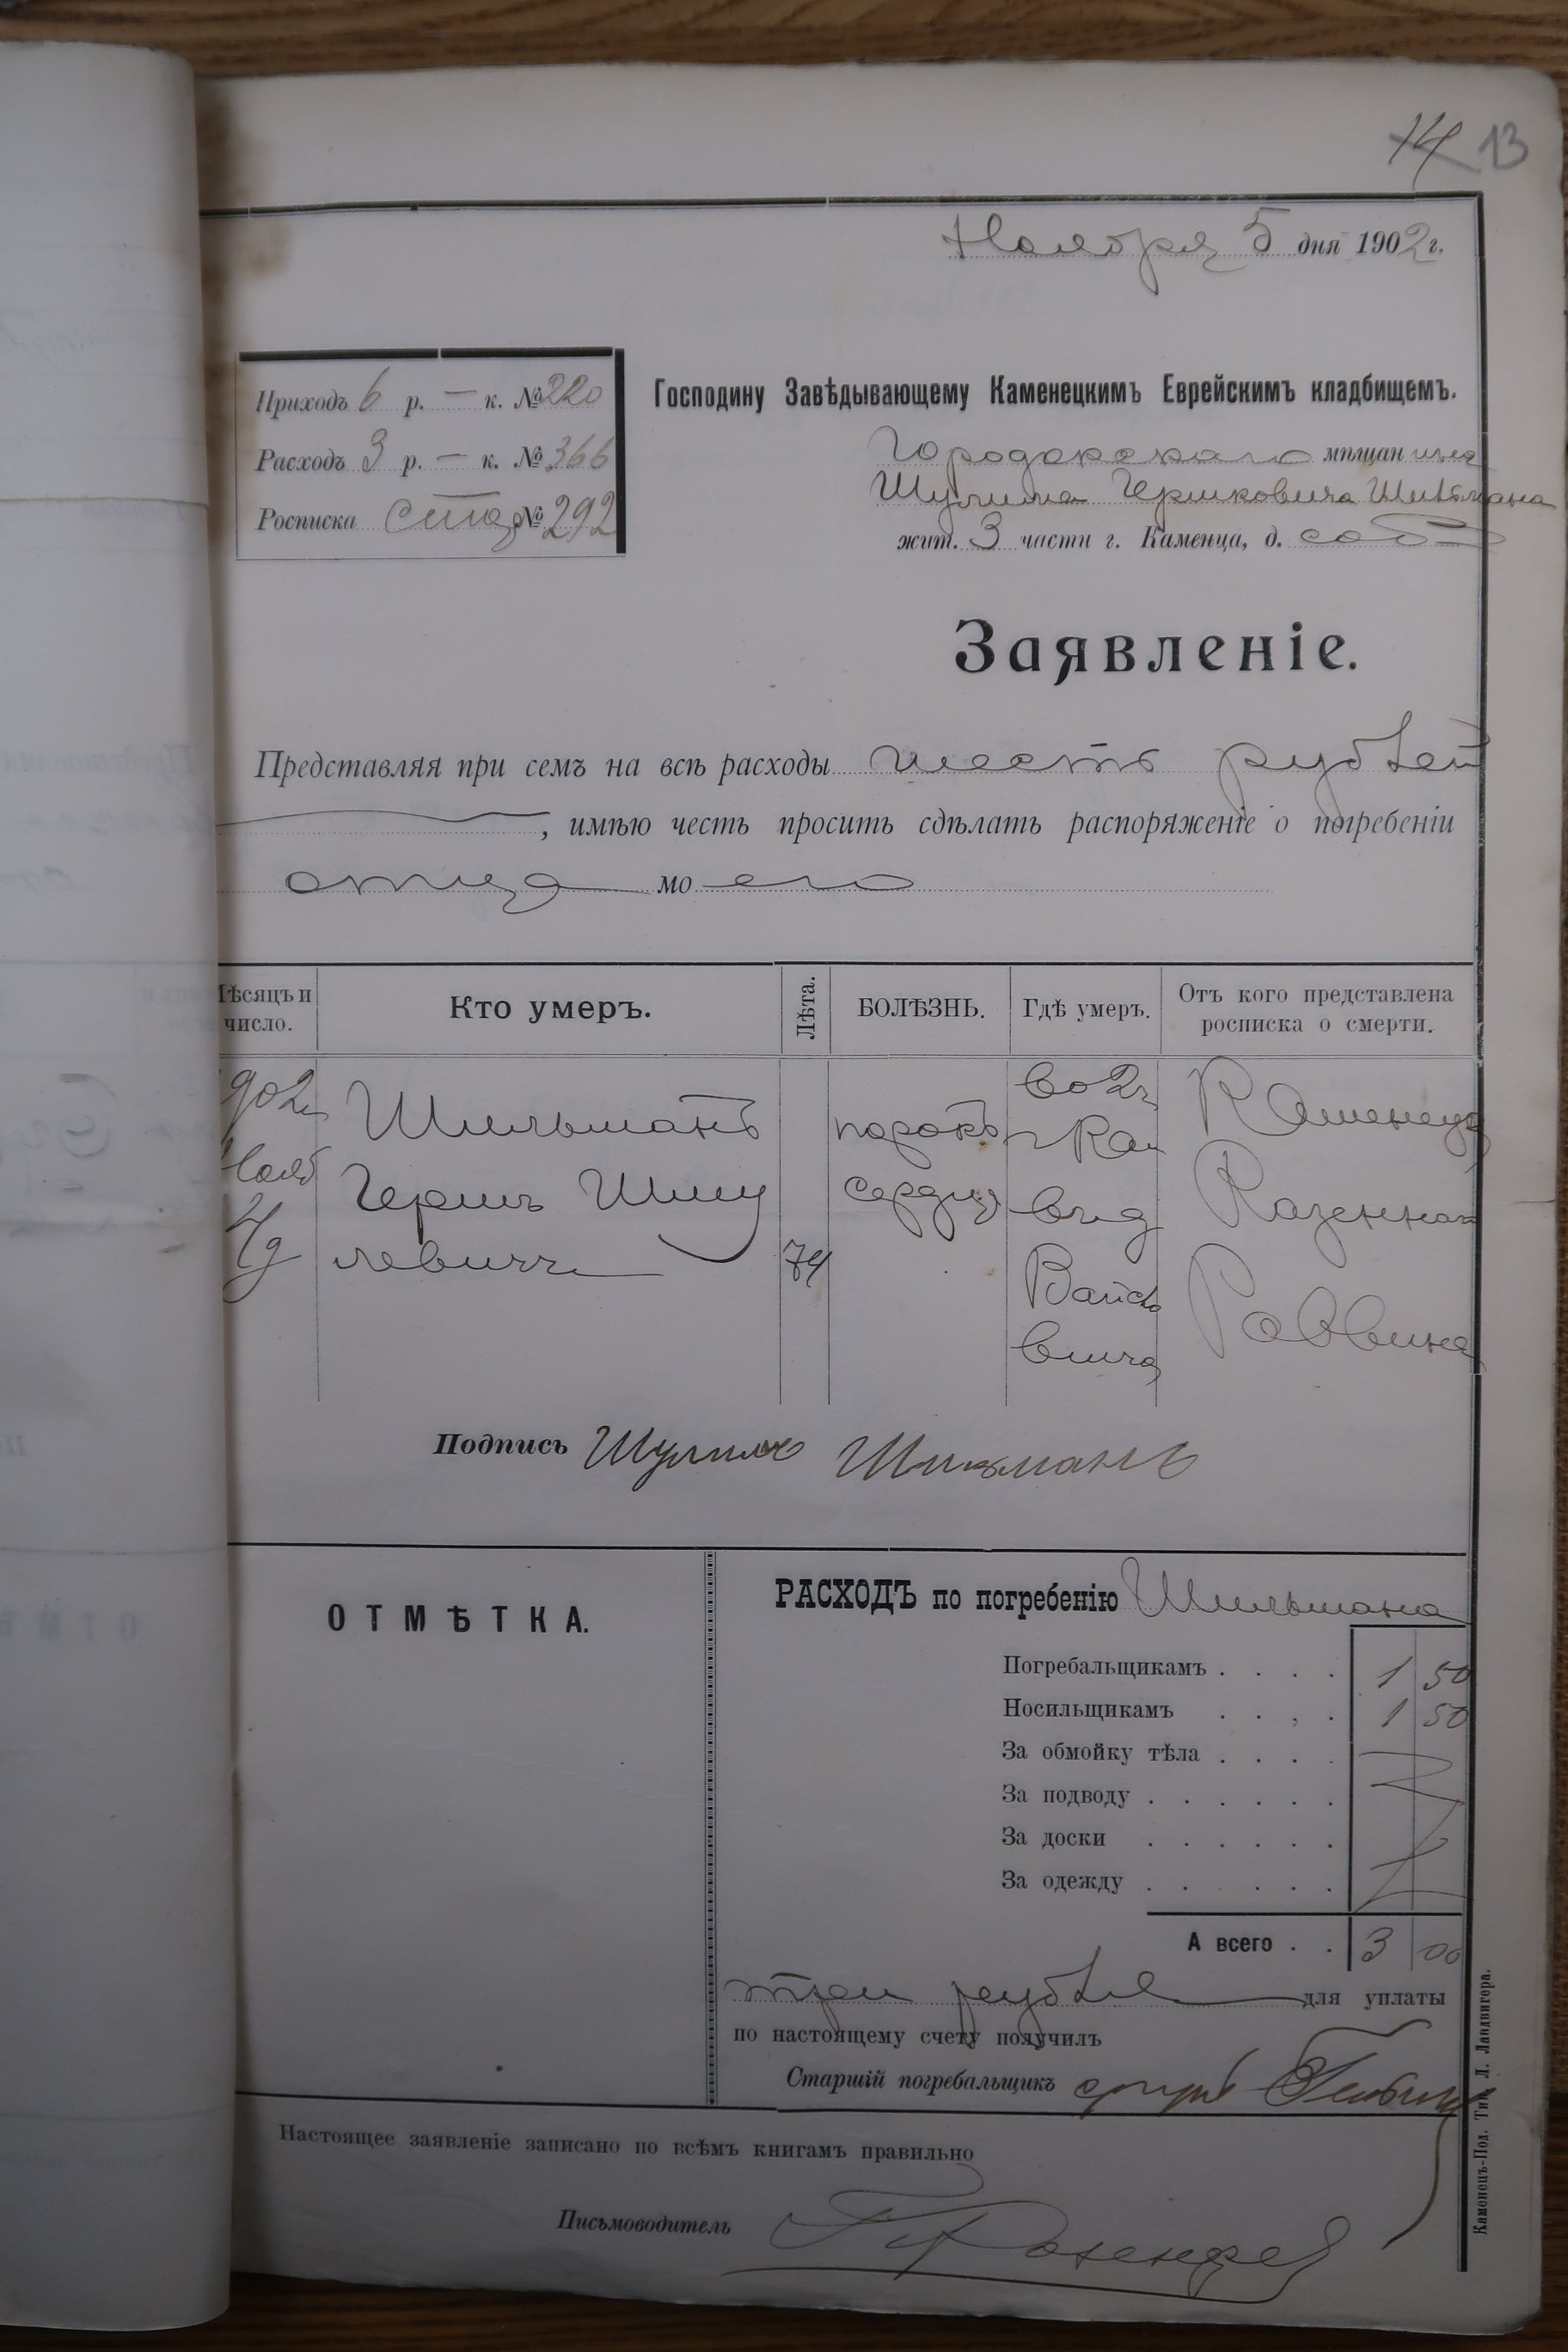 14 13
Ноября 5 дня 1902 г.
Приходъ 6 р. — к. № 220
Расходъ 3 р. — к. № 366
Росписка стар № 292
Господину Завѣдывающему Каменецкимъ Еврейскимъ кладбищемъ.
мѣщанина
Шулима Гершковича
жит. 3 части г. Каменца, д. соб
Заявленіе.
Представляя при семъ на всѣ расходы шесть рублей
, имѣю честь просить сдѣлать распоряженіе о погребеніи
отца моего
Мѣсяцъ и число.
Кто умеръ.
Лѣта.
БОЛѢЗНЬ.
Гдѣ умеръ.
Отъ кого представлена росписка о смерти.
902 г
Нояб
4 д
Шильманъ
Гершъ Шму
левичъ
74
порокъ
сердца
во 2 ч
г Кам
въ д
Вайско
вича
Каменец
Казеннаго
Раввина
Подпись Шулимъ
ОТМѢТКА.
РАСХОДЪ по погребенію Шильмана
Погребальщикамъ . . . . 1 50
Носильщикамъ . . , . 1 50
За обмойку тѣла . . . .
За подводу . . . . . .
За доски . . . . . .
За одежду . . . . . .
А всего . . 3 00
три рубля для уплаты
по настоящему счету получилъ
Старшій погребальщикъ
Настоящее заявленіе записано по всѣмъ книгамъ правильно
Письмоводитель
Каменецъ-Под. Тип. Л. Ландвигера.